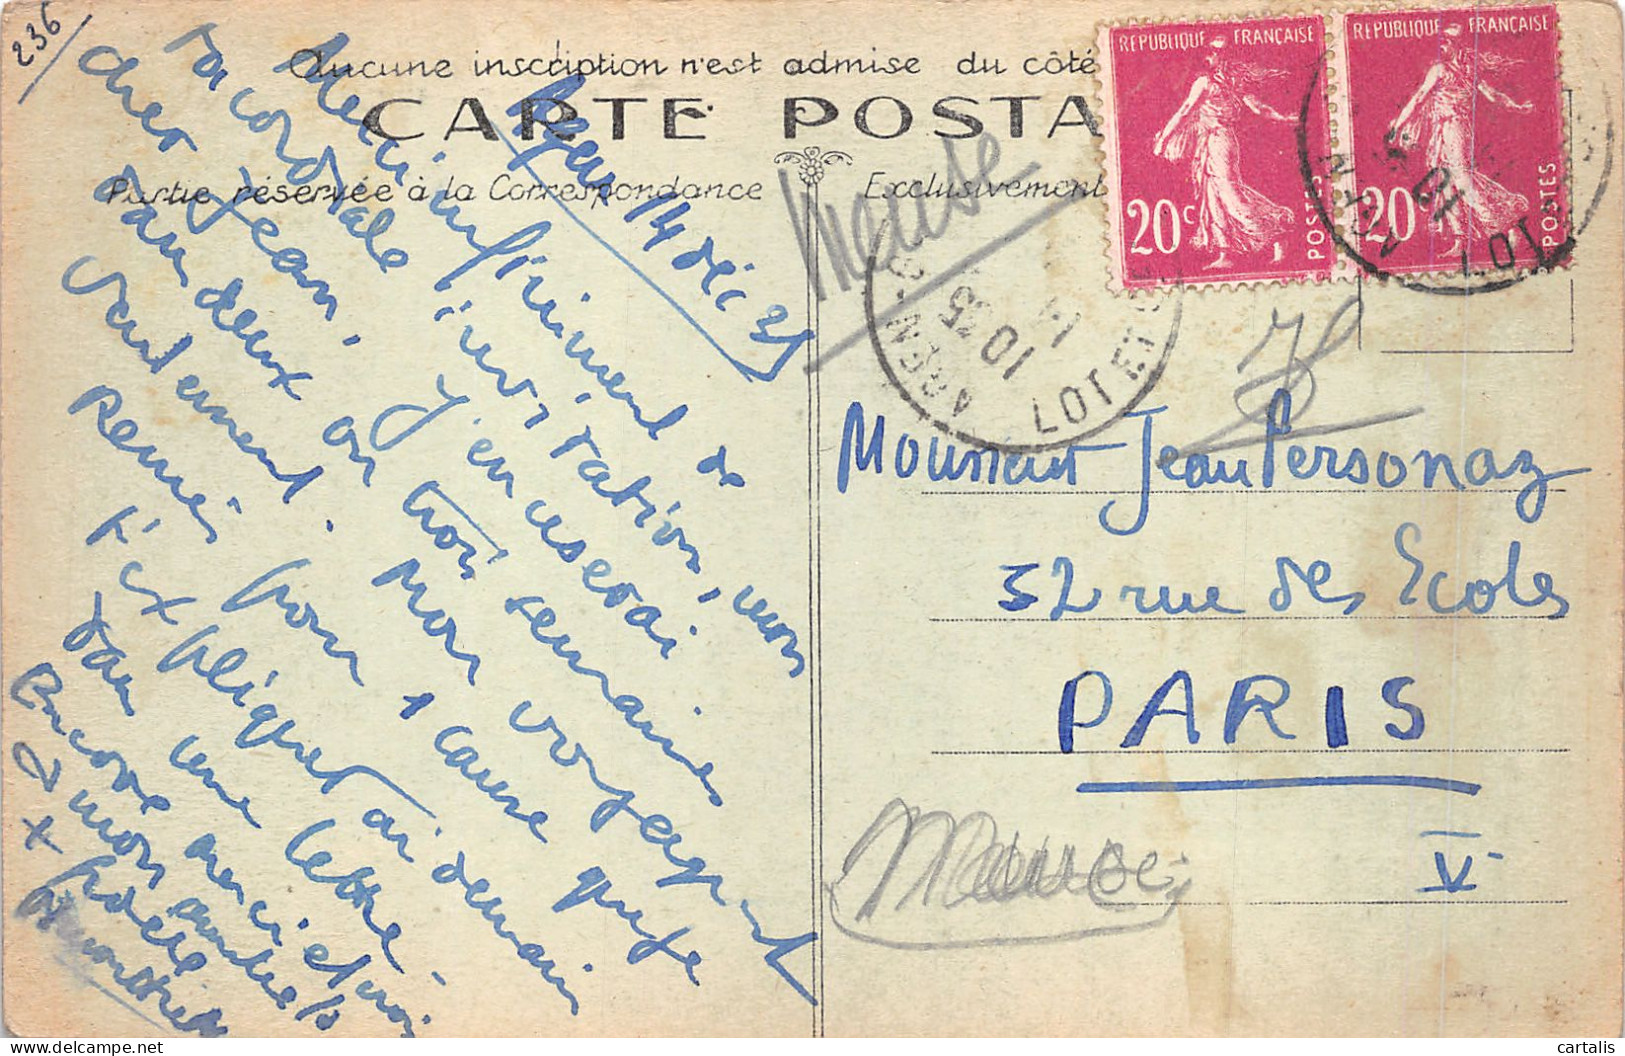 236
Aucune inscription n'est admise du côté
CARTE POSTA
Partie réservée à la Correspondance
Exclusivement
REPUBLIQUE FRANÇAISE
20c
POSTES
REPUBLIQUE FRANÇAISE
20c
POSTES
AGEN
LOT ET
14
10 35
AGEN
LOT
10
Meuse
Agen 14 déc 35
cher Jean,
Merci infiniment de
ta cordiale invitation, mon
J'en userai
dans deux ou trois semaines
seulement. mon voyage
Remis pour 1 cause que je
t'expliquerai demain
dans une lettre.
Encore merci et
à mon
fidèle
Monsieur Jean Personnaz
32 rue des Ecoles
PARIS
V
Meuse
cartalis